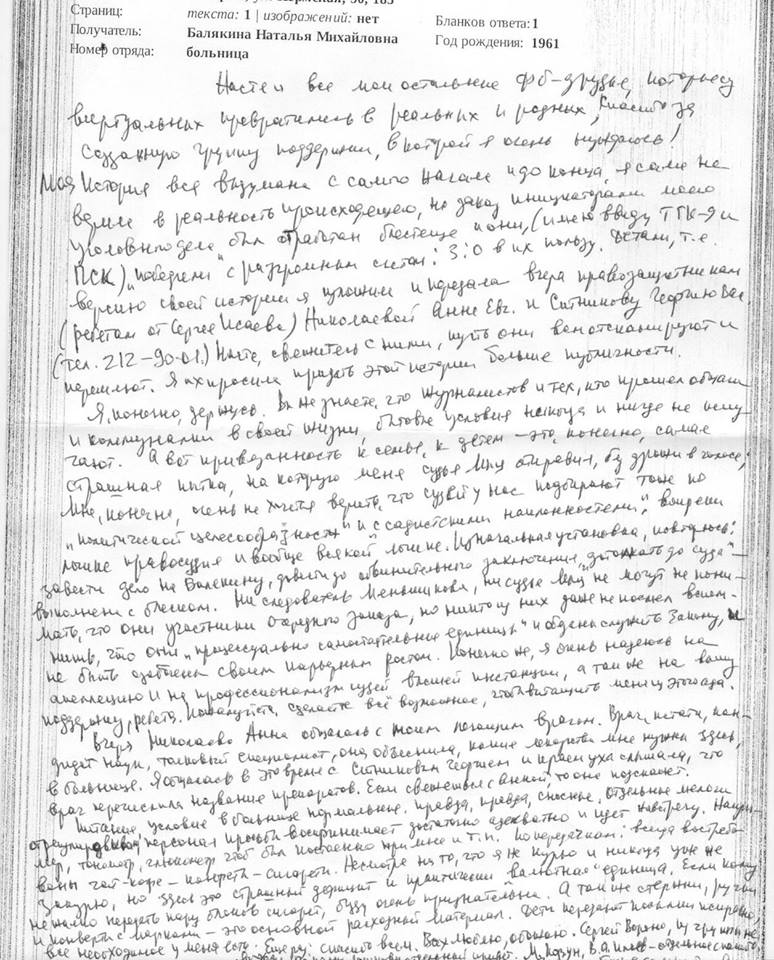 Страниц: текста: 1 | изображений: нет Бланков ответа: 1
Получатель: Балякина Наталья Михайловна Год рождения: 1961
Номер отряда: больница
Настя и все мои остальные фб-друзья, которые из
виртуальных превратились в реальных и родных, спасибо за
созданную группу поддержки, в которой я очень нуждаюсь!
Моя История вся выдумана с самого начала и до конца, я сама не
верила в реальность происходящего, но заказ инициаторами моего
уголовного дела был отработан блестяще и они, (имею ввиду ТГК-9 и
ПСК) "победили" с разгромным счетом: 3:0 в их пользу. Детали, т.е.
версию своей истории я изложила и передала вчера правозащитникам
(ребятам от Сергея Исаева) Николаевой Анне Евг. и Ситникову Георгию
(тел. 212-90-01.) Настя, свяжитесь с ними, пусть они вам отсканируют и
перешлют. Я их просила придать этой истории больше публичности.
Я, конечно, держусь. Вы же знаете, что журналистов и тех, кто прошел общаги
и коммуналки в своей жизни, бытовые условия никогда и нигде не испу-
гают. А вот привязанность к семье, к детям - это, конечно, самая
страшная пытка, на которую меня судья отправил, без дрожи в голосе,
Мне, конечно, очень не хочется верить, что судей у нас подбирают тоже по
"политической целесообразности" и с "садистскими наклонностями", вопреки
логике правосудия и вообще всякой логике. Изначальная установка, повторюсь:
завести дело на Балякину, довести до обвинительного заключения, "дотолкать до суда" -
выполнена с блеском. Ни следователь Меньшикова, ни судья не могут не пони-
мать, что они участники очередного заказа, но никто из них даже не посмел вспом-
нить, что они "процессуально самостоятельные единицы" и обязаны служить Закону, а
не быть озабочены своим карьерным ростом. Конечно же, я очень надеюсь на
апелляцию и на профессионализм судей высшей инстанции, а также на вашу
поддержку, ребята. Пожалуйста, сделайте всё возможное, чтоб вытащить меня из этого ада.
Вчера Николаева Анна общалась с моим лечащим врачом. Врач, кстати, кан-
дидат наук, толковый специалист, она объяснила, какие лекарства мне нужны здесь,
в больнице. Я общалась в это время с Ситниковым Георгием и краем уха слышала, что
врач перечисляла название препаратов. Если свяжетесь с Анной, то она подскажет.
Питание, условия в больнице нормальные. Правда, правда, сносные, отдельные мелочи
отрегулированы, персонал просьбы воспринимает достаточно адекватно и идет навстречу. Напри-
мер, тонометр, глюкометр чтоб был постоянно при мне и т.п. По передачкам: всегда востребо-
ваны чай-кофе-конфеты-сигареты. Несмотря на то, что я не курю и никогда уже не
закурю, но здесь это страшный дефицит и практически валютная единица. Если кому
не жалко передать пару блоков сигарет, буду очень признательна. А также стержни, ручки
и конверты с марками - это основной расходный материал. Дети передают посылки исправно,
все необходимое у меня есть. Еще раз: спасибо всем. Вас люблю, обожаю. Сергей